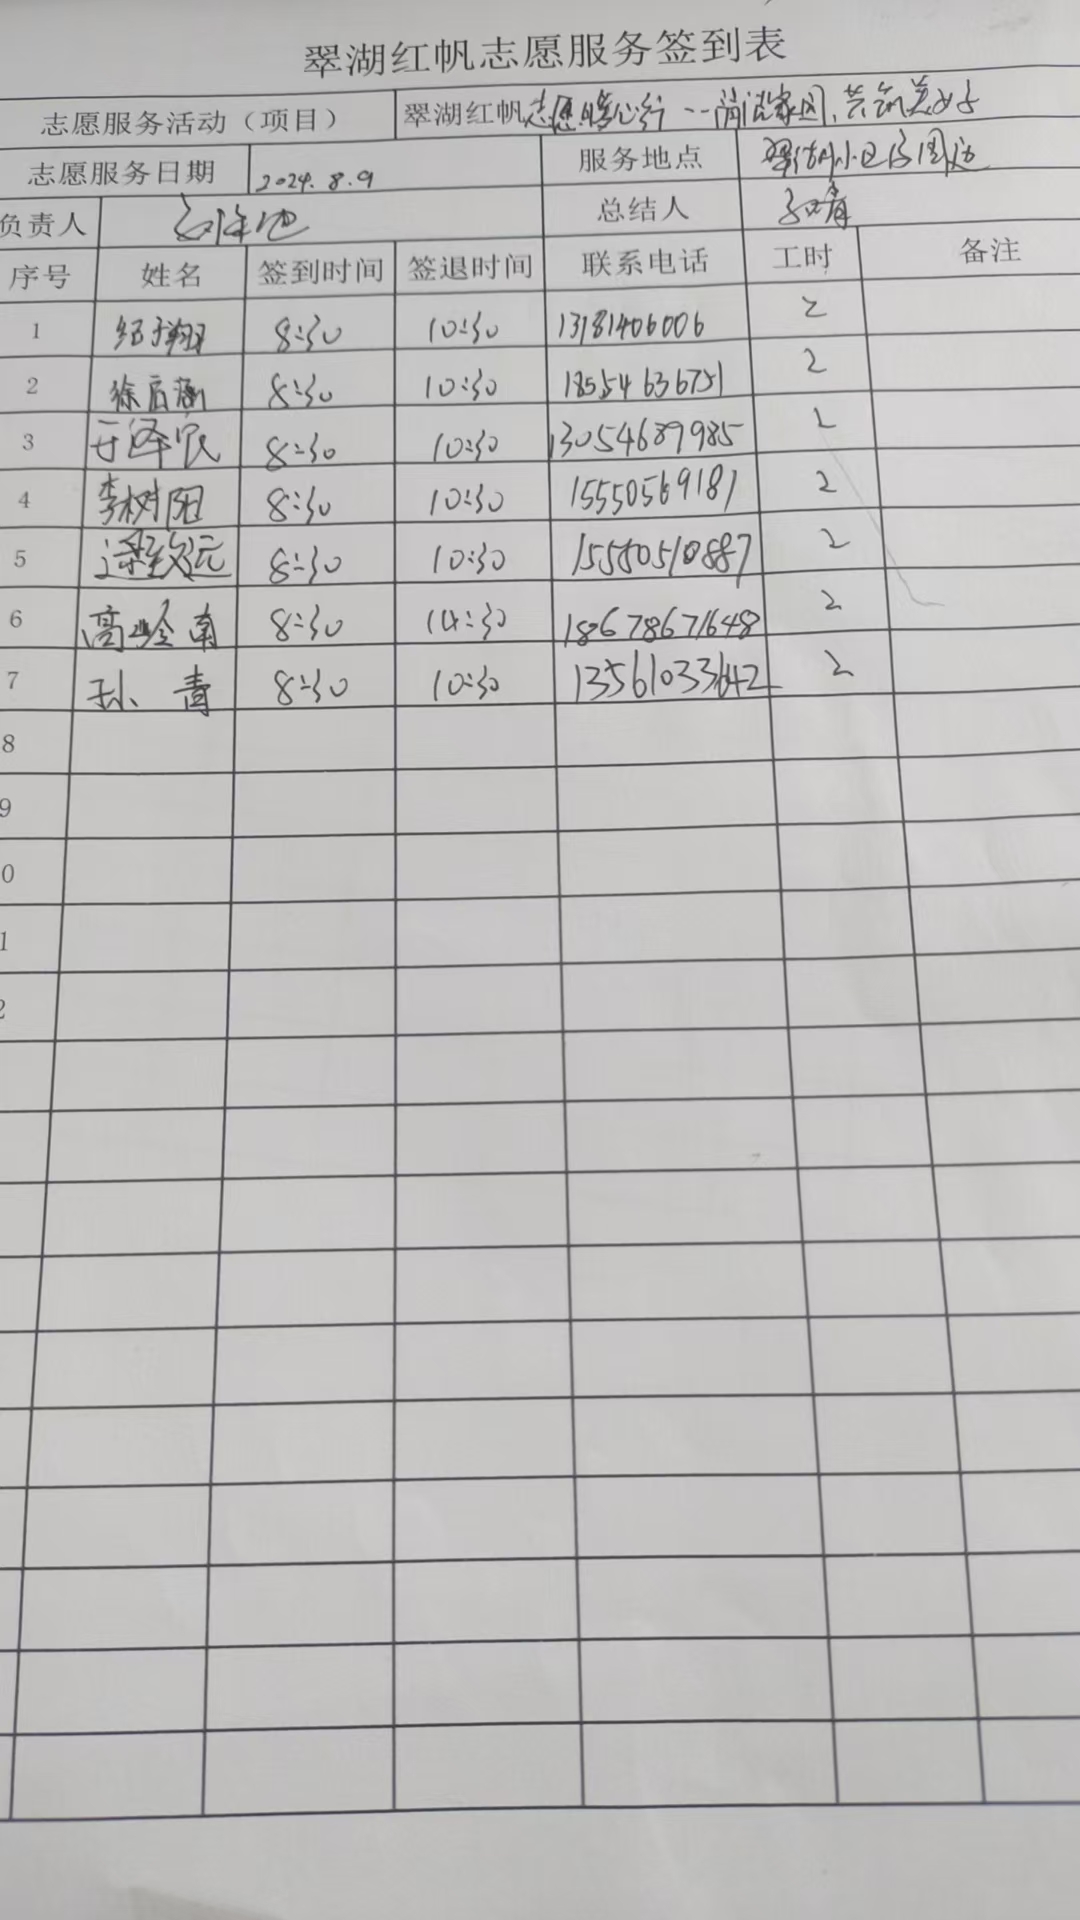 翠湖红帆志愿服务签到表
志愿服务活动（项目） 翠湖红帆志愿暖心行--清洁家园,共筑美好
志愿服务日期 2024.8.9 服务地点 翠湖小区及周边
负责人 总结人
序号 姓名 签到时间 签退时间 联系电话 工时 备注
1 8:30 10:30 13181406006 2
2 徐启涵 8:30 10:30 18554636751 2
3 于泽民 8:30 10:30 13054689985 2
4 李树阳 8:30 10:30 15550569181 2
5 梁致远 8:30 10:30 15580510887 2
6 高岭南 8:30 10:30 18678671648 2
7 孙青 8:30 10:30 13561033642 2
8
9
0
1
2